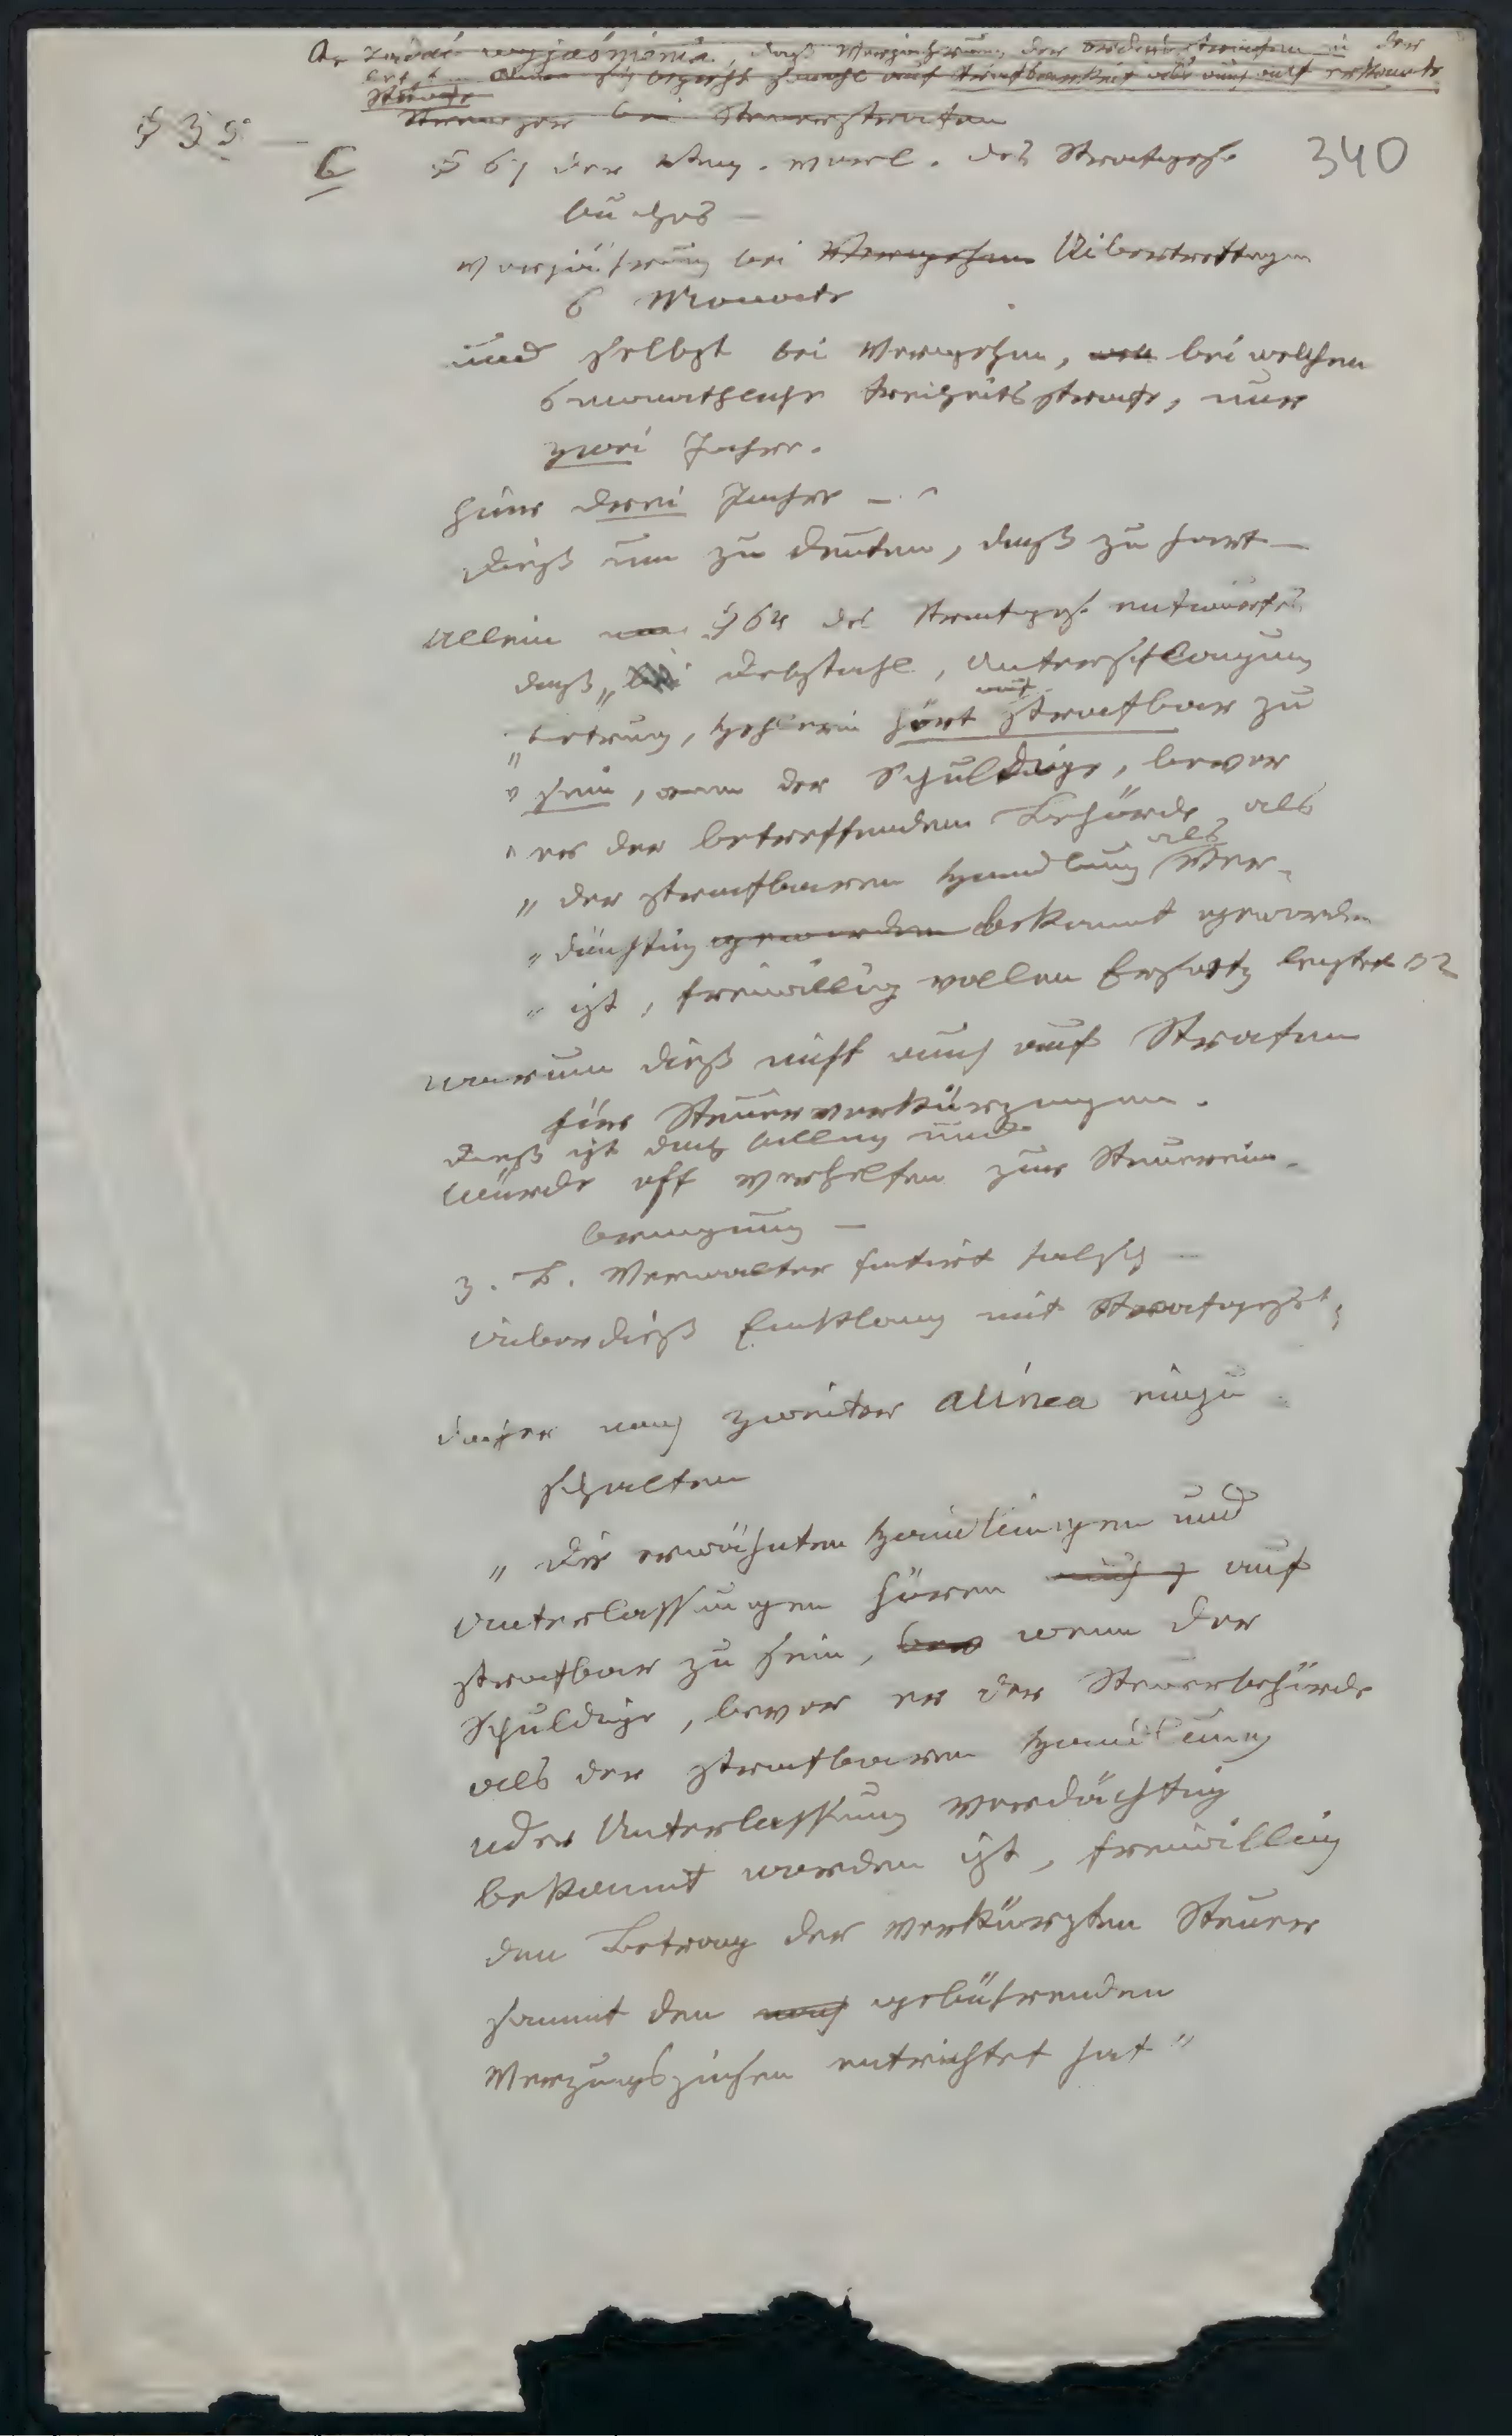 daß Verjährung der
sich bezieht sowohl auf Strafbarkeit als auch auf erkannte
Strafe
bei Steuerstrafen
§ 35
340
b § 61 der Reg. Vorl. des Strafgese
buches —
Verjährung bei Vergehen Uibertrettungen
6 Monate
und selbst bei Vergehen, bei welchen
6 monathliche Freiheitsstrafe, nur
zwei Jahre.
hier drei Jahre —
dieß nur zu deuten, daß zu hart —
Allein § 64 des Strafges. entwurfes
daß „bei Diebstahl, Unterschlagung
„Betrug, Hehlerei hört auf strafbar zu
„sein, wenn der Schuldige, bevor
„er der betreffenden Behörde als
„der strafbaren Handlung als Ver-
„dächtig geworden bekannt geworden
„ist, freiwillig vollen Ersatz leistet
warum dieß nicht auch auf Strafen
für Steuerverkürzungen.
dieß ist doch billig und
würde oft verhelfen zur Steuerein-
bringung —
z. B. Verwalter fatirt falsch —
überdieß Einklang mit Strafgesetz
daher nach zweiter alinea einzu
schalten
„Die erwähnten Handlungen und
Unterlassungen hören auf
strafbar zu sein, bev wenn der
Schuldige, bevor er der Steuerbehörde
als der strafbaren Handlung
oder Unterlassung verdächtig
bekannt worden ist, freiwillig
den Betrag der verkürzten Steuer
sammt den noch gebührenden
Verzugszinsen entrichtet hat"